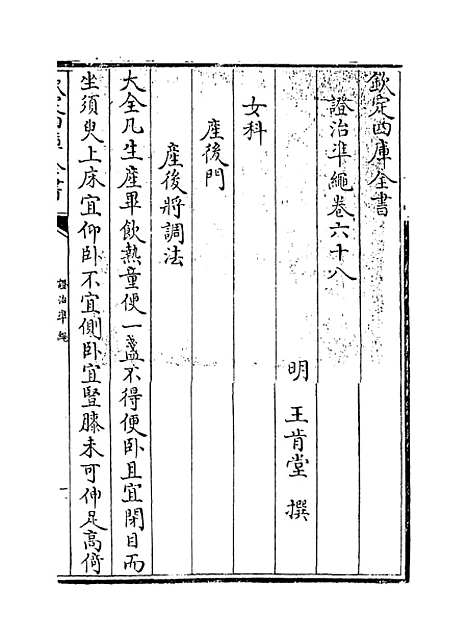 欽定四庫全書
證治準繩卷六十八
明 王肯堂 撰
女科
産後門
産後將調法
大全凡生産畢飲熱童便一盞不得便卧且宜閉目而
坐須臾上床宜仰卧不宜側卧宜豎膝未可伸足高倚
證治準繩
一